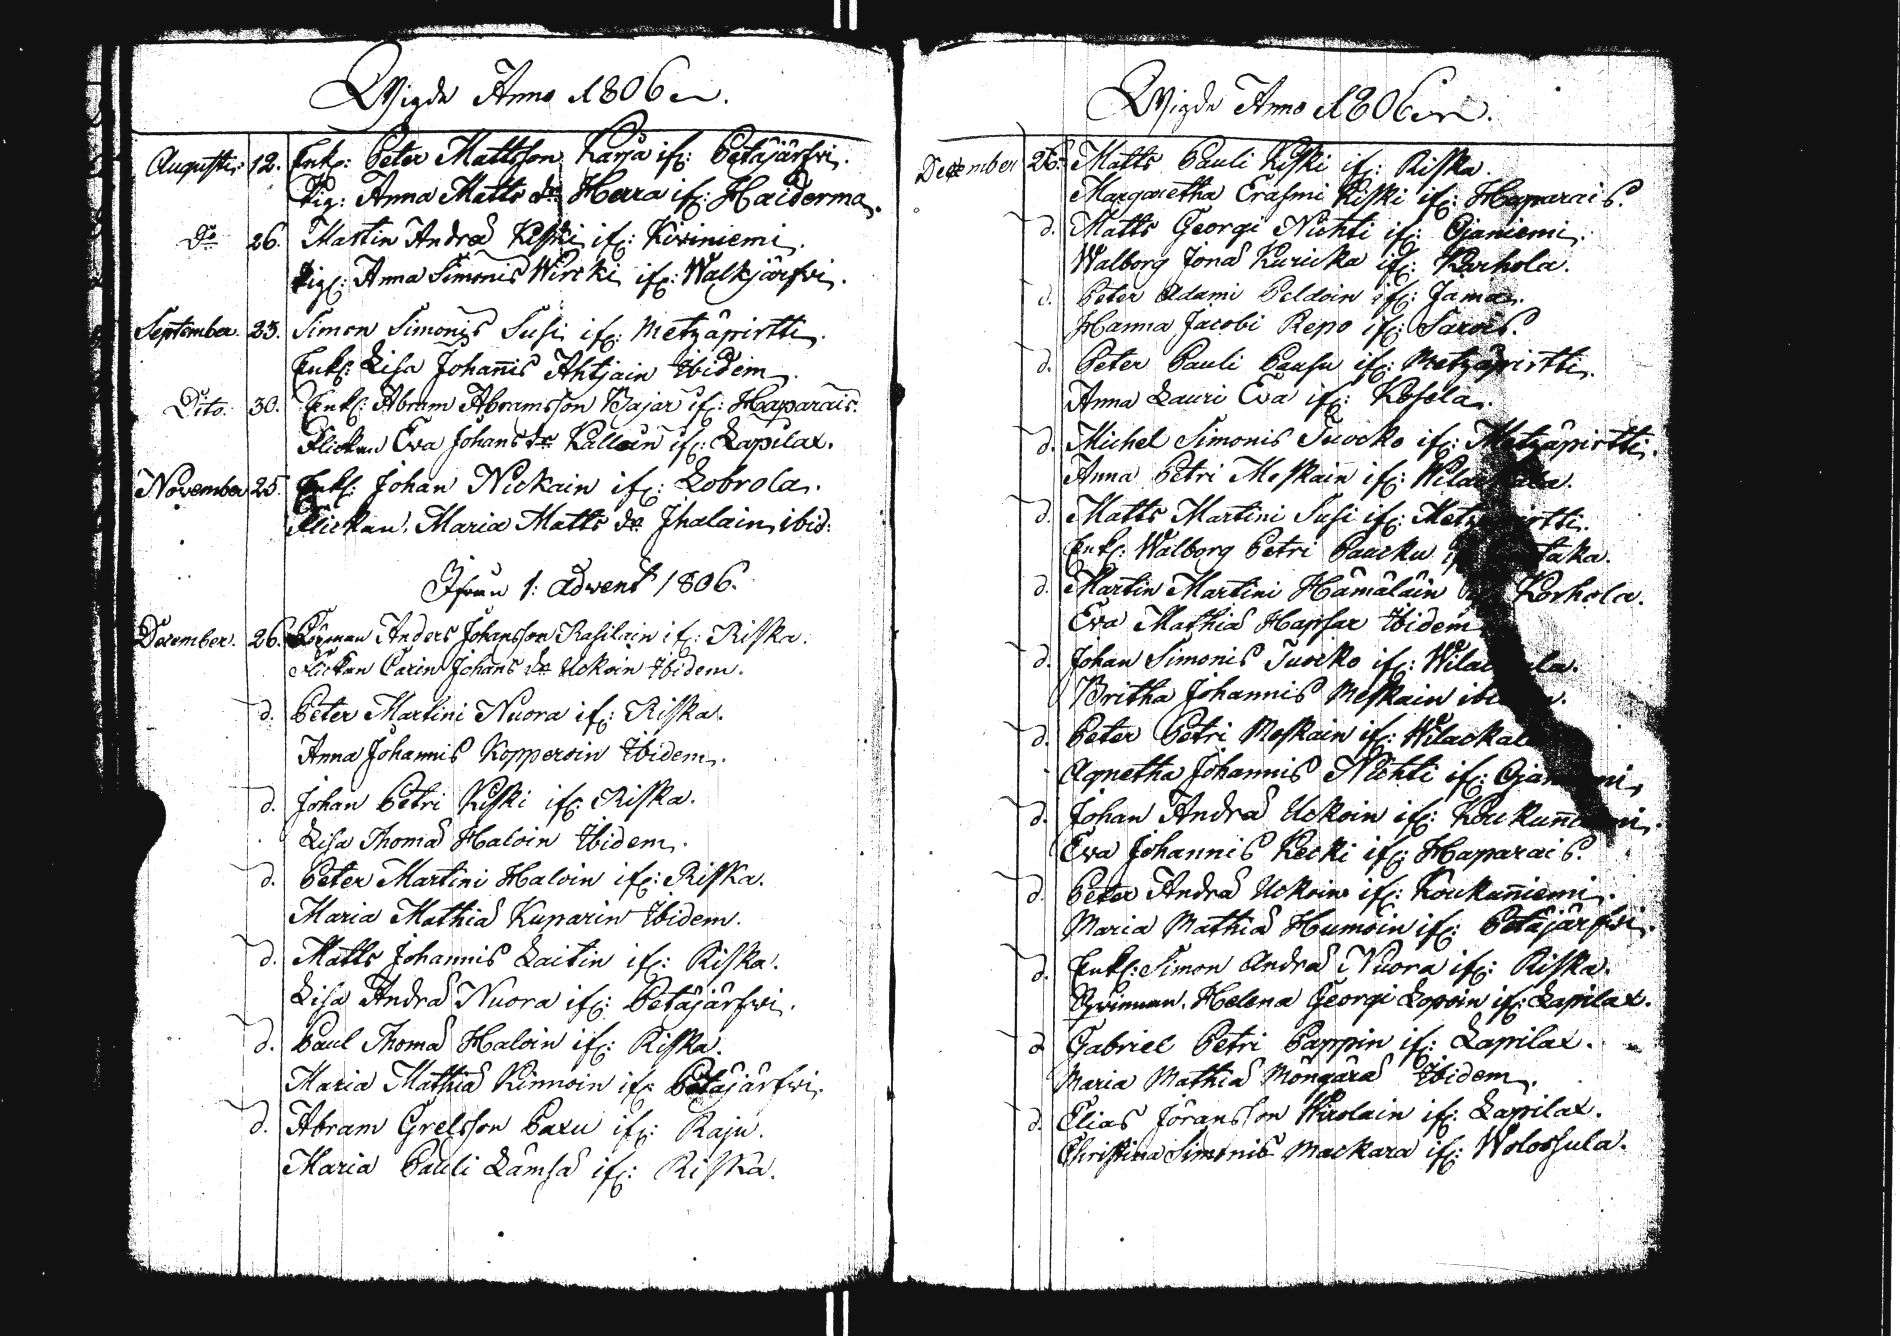 Wigde Anno 1806
Augusti: 12. Enkl: Peter Mattsson Karja if: Petäjärfwi.
Pig: Anna Matts dr Herra if: Haiderma.
Do 26. Martin Andreæ Kiski if: Kiviniemi.
Pig: Anna Simonis Wircki if: Walkjärfwi.
September. 23. Simon Simonis Susi if: Metzäpirtti.
Enkl: Lisa Johannis Ahtjain Ibidem.
Dito. 30. Enkl: Abram Abramsson Bajar if: Haparais.
Flickan Eva Johans dr Kalloin if: Lapilax.
November 25. Enkl: Johan Nickain if: Lobrola.
Flickan. Maria Matts dr Ihalain, ibid:
Ifrån 1: Advent 1806.
December. 26. Anders Johansson Rasilain if: Riska.
Flickan Carin Johans dr Uckoin Ibidem.
d. Peter Martini Nuora if: Riska.
Anna Johannis Kopperoin Ibidem.
d. Johan Petri Kiski if: Riska.
Lisa Thomæ Haloin Ibidem.
d. Peter Martini Haloin if: Riska.
Maria Mathiæ Kuparin Ibidem.
d. Matts Johannis Laitin if: Riska.
Lisa Andreæ Nuora if: Petäjärfwi.
d. Paul Thomæ Haloin if: Riska.
Maria Mathiæ Kinnoin if: Petäjärfwi.
d. Abram Grelsson Paxu if: Raju.
Maria Pauli Lämsä if: Riska.
Wigde Anno 1806
December 26. Matts Pauli Kiski if: Riska.
Margaretha Erasmi Kiski if: Haparais.
d. Matts Georgi Nichti if: Ojaniemi.
Walborg Jonæ Kuricka if: Karhola.
d. Peter Adami Peldoin if: Jama.
Hanna Jacobi Repo if: Sarois.
d. Peter Pauli Pausu if: Metzäpirtti.
Anna Lauri Eva if: Kosela.
d. Michel Simonis Tuocko if: Metzäpirtti.
Anna Petri Meskain if:
d. Matts Martini Susi if: Metzäpirtti.
Enkl: Walborg Petri Paacku
d. Martin Martini Hämäläin Korhola.
Eva Mathiæ Hapsar Ibidem
d. Johan Simonis Tuocko if:
Britha Johannis Meskain
d. Peter Petri Meskain if: Wilackala
Agnetha Johannis Nichti if: Ojaniemi.
d. Johan Andreæ Uckoin if: Koukunniemi.
Eva Johannis Kecki if: Haparais.
d. Peter Andreæ Uckoin if: Koukunniemi.
Maria Mathiæ Humoin if: Petäjärfwi.
d. Enkl: Simon Andreæ Nuora if: Riska.
Qvinnan. Helena Georgi Lopoin if: Lapilax.
d Gabriel Petri Pappin if: Lapilax.
Maria Mathiæ Möngäræ Ibidem.
d. Elias Jöransson Wirolain if: Lapilax.
Christina Simonis Mackara if: Wolossula.